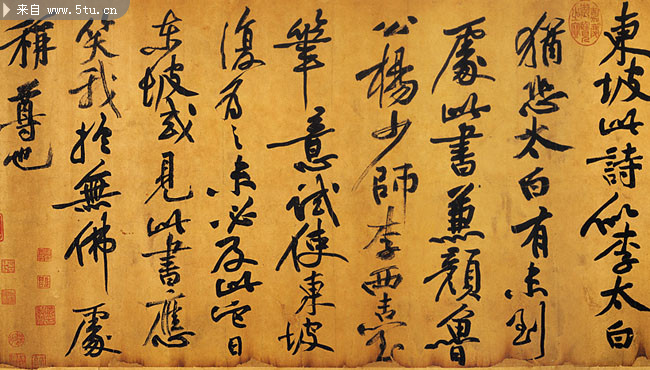 来自 www.5tu.cn
東坡此詩似李太白
猶恐太白有未到
處此書兼顏魯
公楊少師李西臺
筆意試使東坡
復為之未必及此它日
東坡或見此書應
笑我於無佛處
稱尊也